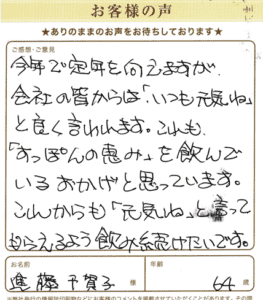 お客様の声
★ありのままのお声をお待ちしております★
ご感想・ご意見
今年で定年を向えますが、
会社の皆からは「いつも元気ね」
と良く言われます。これも、
「すっぽんの恵み」を飲んで
いるおかげと思っています。
これからも「元気ね」と言って
もらえるよう飲み続けたいです。
お名前
年齢
進藤 千賀子 様
64 歳